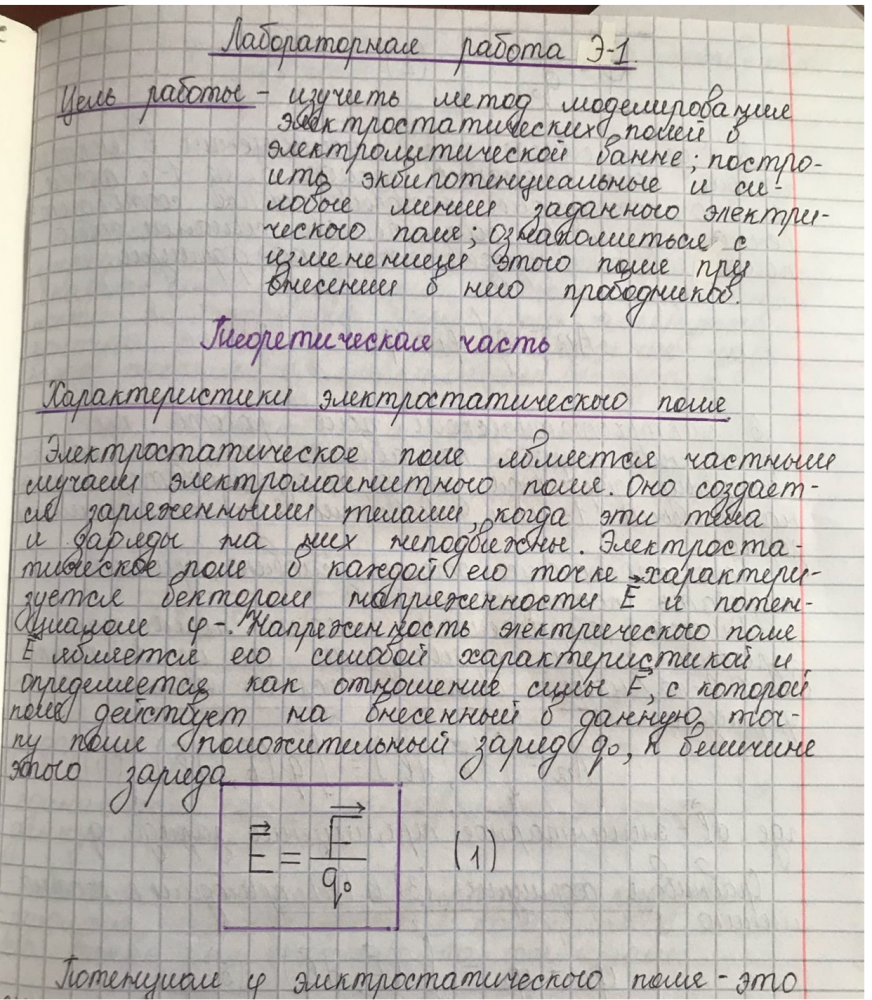 Лабораторная работа Э-1.
Цель работы - изучить метод моделирования
электростатических полей в
электролитической ванне; постро-
ить эквипотенциальные и си-
ловые линии заданного электри-
ческого поля; ознакомиться с
изменением этого поля при
внесении в него проводников.
Теоретическая часть
Характеристики электростатического поля
Электростатическое поле является частным
случаем электромагнитного поля. Оно создает-
ся заряженными телами, когда эти тела
и заряды на них неподвижны. Электроста-
тическое поле в каждой его точке характери-
зуется вектором напряженности E⃗ и потен-
циалом φ-. Напряженность электрического поля
E⃗ является его силовой характеристикой и
определяется как отношение силы F⃗, с которой
поле действует на внесенный в данную точ-
ку поля положительный заряд q₀, к величине
этого заряда
E⃗ = F⃗/q₀ (1)
Потенциал φ электростатического поля - это